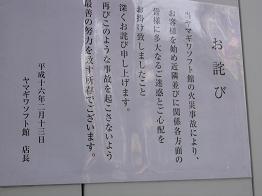 お詫び
当ヤマギワソフト館の火災事故により、
お客様を始め近隣並びに関係各方面の
皆様に多大なるご迷惑とご心配を
お掛け致しましたこと
深くお詫び申し上げます。
再びこのような事故を起こさないよう
最善の努力を致す所存でございます。
平成十六年二月十三日
ヤマギワソフト館 店長